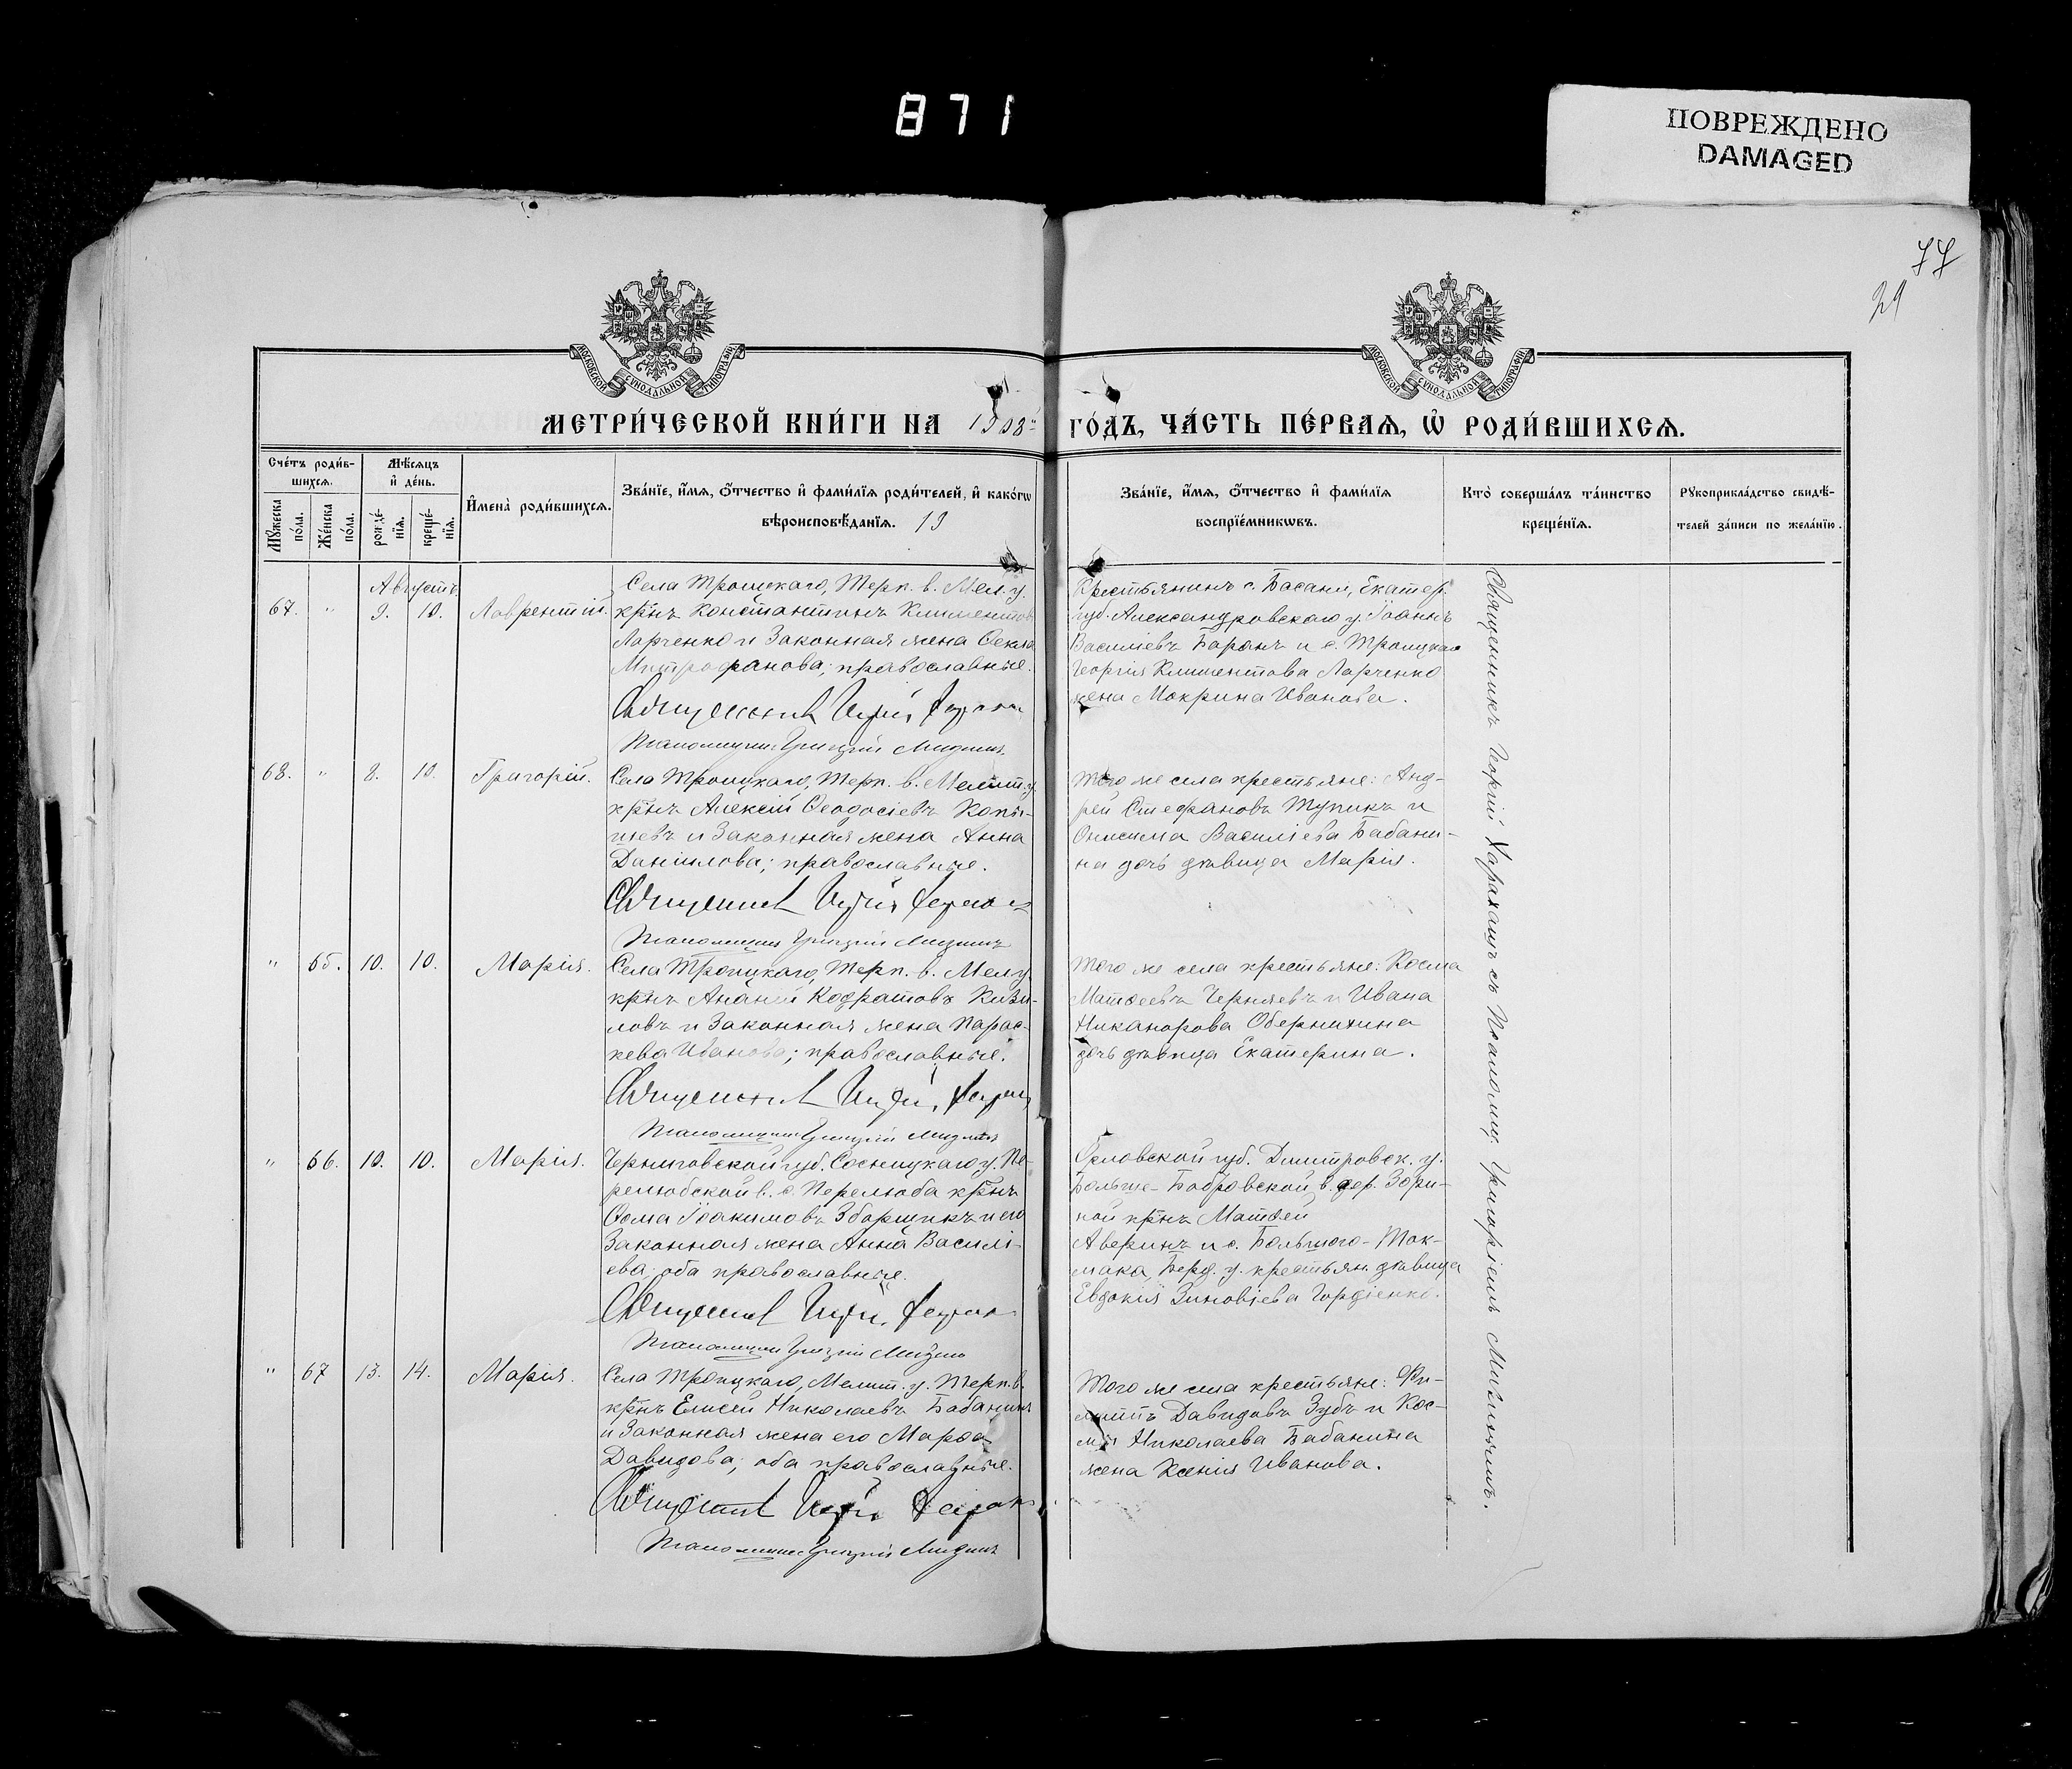 871
ПОВРЕЖДЕНО
DAMAGED
77
29
МОСКОВСКОЙ СѴНОДАЛЬНОЙ ТИПОГРАФІИ
МОСКОВСКОЙ СѴНОДАЛЬНОЙ ТИПОГРАФІИ
МЕТРИ́ЧЕСКОЙ КНИ́ГИ НА 1908й ГО́ДЪ, ЧА́СТЬ ПЕ́РВАѦ, Ѡ҆ РОДИ́ВШИХСѦ.
Сче́тъ роди́в-
шихсѧ.
Мꙋ́жеска по́ла.
Же́нска по́ла.
Мѣ́сѧцъ
и҆ де́нь.
рожде́-
нїѧ.
креще́-
нїѧ.
И҆мена̀ роди́вшихсѧ.
Зва́нїе, и҆́мѧ, ѻ҆́тчество и҆ фами́лїѧ роди́телей, и҆ како́гѡ
вѣроисповѣ́данїѧ. 19
Зва́нїе, и҆́мѧ, ѻ҆́тчество и҆ фами́лїѧ
воспрїе́мникѡвъ.
Кто̀ соверша́лъ та́инство
креще́нїѧ.
Рꙋкоприкла́дство свидѣ́-
телей за́писи по жела́нїю.
Августъ
67. " 9. 10. Лаврентій.
Села Троицкаго, Терп. в. Мел. у.
крнъ Константинъ Климентов
Ларченко и законная жена Ѳекла
Митрофанова; православные.
Священник Георгій
Псаломщикъ Григорій Мизинъ
Крестьянинъ с. Басани, Екатер.
губ. Александровскаго у. Іоаннъ
Василіевъ Баранъ и с. Троицкаго
Георгія Климентова Ларченко
жена Мокрина Иванова.
68. " 8. 10. Григорій.
Села Троицкаго, Терп. в. Мелит. у.
крнъ Алексій Ѳеодосіевъ Копы-
тевъ и законная жена Анна
Даніилова; православные.
Священник Георгій
Псаломщикъ Григорій Мизинъ
Того же села крестьяне: Анд-
рей Стефановъ Тупикъ и
Онисима Василіева Бабани-
на дочь дѣвица Марія.
" 65. 10. 10. Марія.
Села Троицкаго, Терп. в. Мел. у.
крнъ Ананій Кодратовъ Кизи-
ловъ и законная жена Парас-
кева Иванова; православные.
Священник Георгій
Псаломщикъ Григорій Мизинъ
Того же села крестьяне: Косма
Матѳеевъ Черняевъ и Ивана
Никанорова Обернихина
дочь дѣвица Екатерина.
" 66. 10. 10. Марія.
Черниговской губ. Сосницкаго у. Пе-
релюбской в. с. Перелюба крнъ
Ѳома Іоакимовъ Зборщикъ и его
законная жена Анна Василі-
ева; оба православные.
Священник Георгій
Псаломщикъ Григорій Мизинъ
Орловской губ. Димитровск. у.
Больше-Бобровской в. дер. Зори-
ной крнъ Матѳей
Аверинъ и с. Большого-Ток-
мака, Берд. у. крестьян. дѣвица
Евдокія Зиновіева Гордіенко.
" 67 13. 14. Марія.
Села Троицкаго, Мелит. у. Терп. в.
крнъ Елисей Николаевъ Бабанинъ
и законная жена его Марѳа
Давидова; оба православные.
Священник Георгій
Псаломщикъ Григорій Мизинъ
Того же села крестьяне: Фи-
липпъ Давидовъ Зубъ и Кос-
мы Николаева Бабанина
жена Ксенія Иванова.
Священникъ Георгій съ Псаломщ. Григоріемъ Мизинымъ.